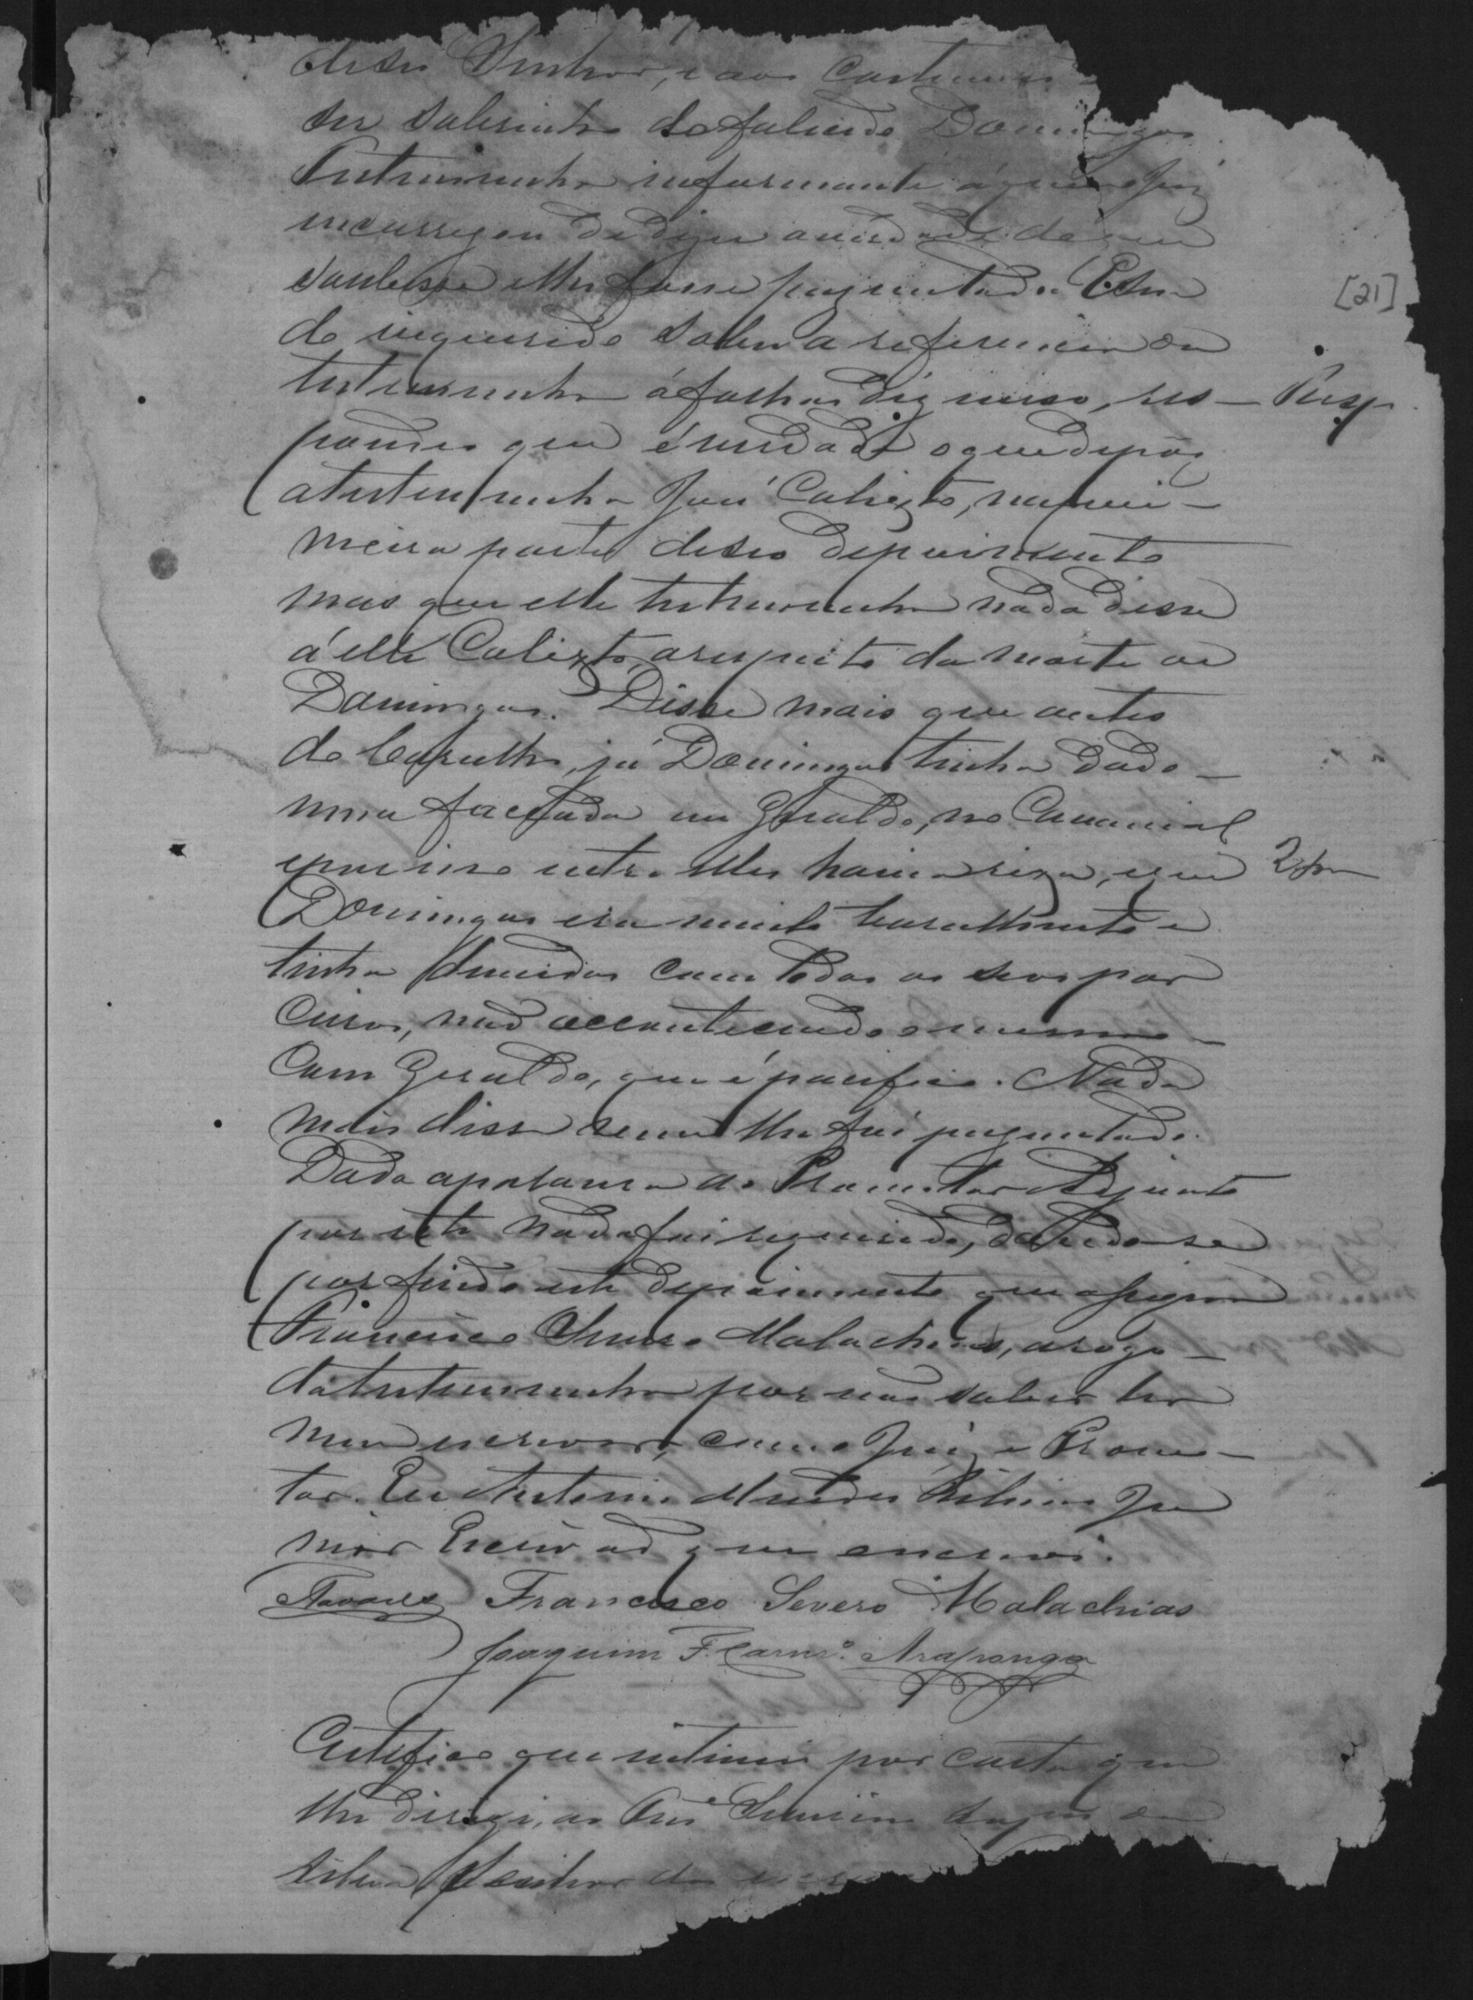 de seo Senhor, e aos costumes
ser sobrinho do falecido Domingos
Testemunha informante á quem o Juiz
encarregou de dizer a verdade do que
soubesse e lhe fosse perguntado. E sen
do inquerido sobre a referencia da
testemunha á folhas dez verso, res-
pondeu que é verdade o que depôz
a testemunha José Calixto, na pri-
meira parte de seo depoimento
mas que elle testemunha nada disse
á elle Calixto, a respeito da morte de
Domingos. Disse mais que antes
do barulho, já Domingos tinha dado
uma facada em Geraldo, no Canavial
e por isso entre elles havia rixa, e que
Domingos era muito barulhento e
tinha duvidas com todos os seos par
ceiros, não acontecendo o mesmo
com Geraldo, que é pacifico. Nada
mais disse nem lhe foi perguntado.
Dada a palavra ao Promotor Adjunto
por este nada foi requerido, dando-se
por findo este depoimento que assigna
Francisco Severo Malachias, a rogo
da testemunha por não saber ler
nem escrever, com o Juiz e Promo-
tor. Eu Antonio Mendes Ribeiro Ju
nior Escrivão que escrevi.
Tavares Francisco Severo Malachias
Joaquim F. Carnro. Araponga
Certifico que intimei por carta que
lhe dirigi, ao
Silva Senhor do
[21]
Resp
2